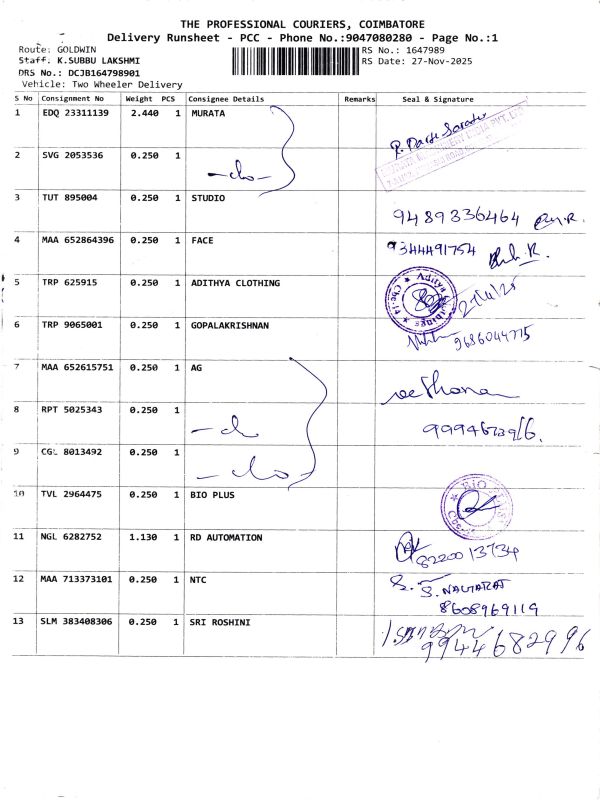 THE PROFESSIONAL COURIERS, COIMBATORE
Delivery Runsheet - PCC - Phone No.:9047080280 - Page No.:1
Route: GOLDWIN
Staff: K.SUBBU LAKSHMI
DRS No.: DCJB164798901
Vehicle: Two Wheeler Delivery
RS No.: 1647989
RS Date: 27-Nov-2025
S No Consignment No Weight PCS Consignee Details Remarks Seal & Signature
1 EDQ 23311139 2.440 1 MURATA
2 SVG 2053536 0.250 1 -do-
3 TUT 895004 0.250 1 STUDIO 9489336464
4 MAA 652864396 0.250 1 FACE 9344491754
5 TRP 625915 0.250 1 ADITHYA CLOTHING
6 TRP 9065001 0.250 1 GOPALAKRISHNAN
7 MAA 652615751 0.250 1 AG
8 RPT 5025343 0.250 1 -do
9 CGL 8013492 0.250 1 -do-
10 TVL 2964475 0.250 1 BIO PLUS BIO
11 NGL 6282752 1.130 1 RD AUTOMATION 8220013734
12 MAA 713373101 0.250 1 NTC
8608969119
13 SLM 383408306 0.250 1 SRI ROSHINI
9944682996